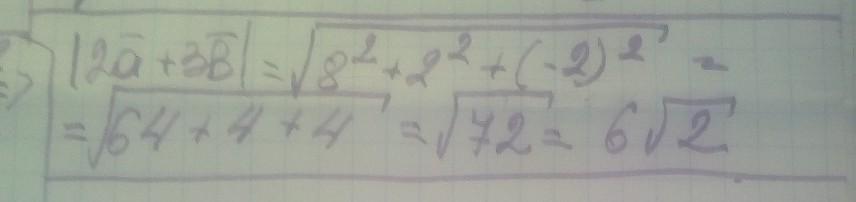 |2ā + 3b̄| = √8² + 2² + (-2)² =
= √64 + 4 + 4 = √72 = 6√2